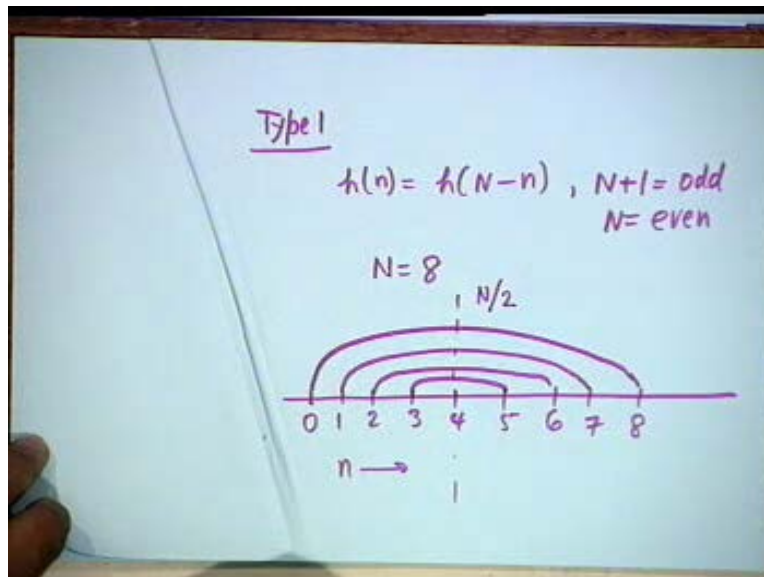 Type 1
h(n) = h(N-n) , N+1 = odd
N = even
N = 8
N/2
0 1 2 3 4 5 6 7 8
n →